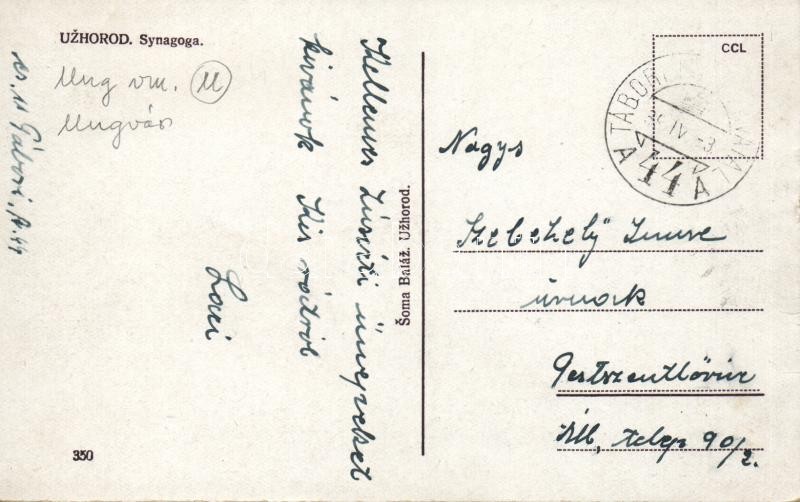 UŽHOROD. Synagoga.
Ung vm. U
Ungvár
Kellemes húsvéti ünnepeket
kivánok Kis
Laci
Šoma Baláž. Užhorod.
350
CCL
TÁBORI
IV 3
A 44 A
Nagys
Szebehelÿ Imre
úrnak
Pestszentlőrinc
Áll. telep 90/2.